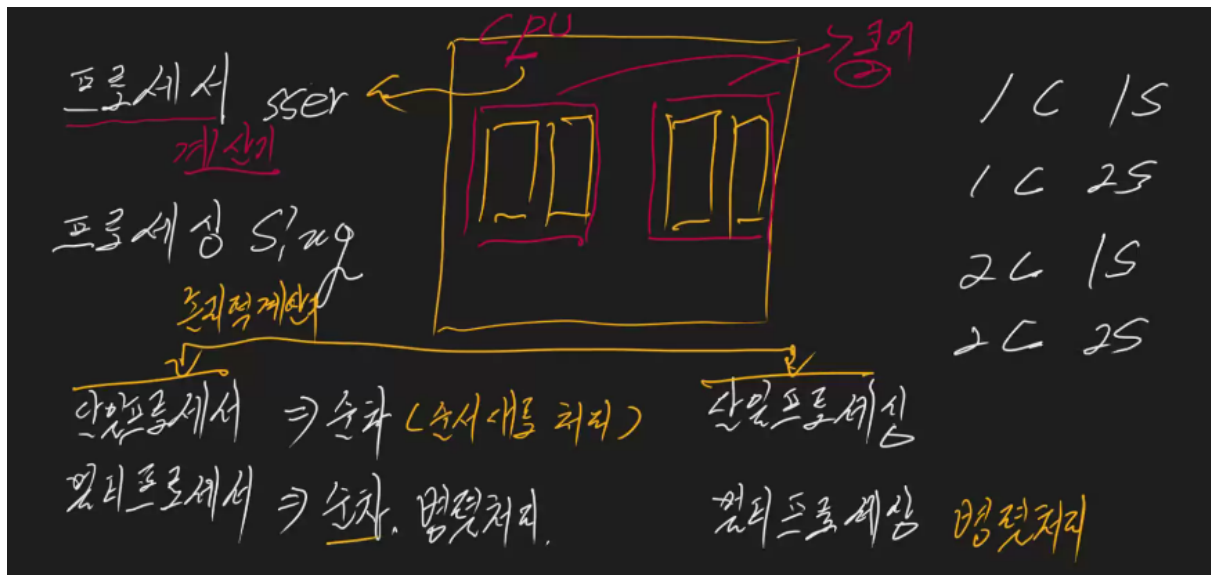 CPU
코어
2
프로세서 sser
계산기
프로세싱 sing
논리적계산
1C 1S
1C 2S
2C 1S
2C 2S
단일프로세서 ⇒ 순차 (순서대로 처리)
멀티프로세서 ⇒ 순차, 병렬처리.
단일프로세싱
멀티프로세싱 병렬처리